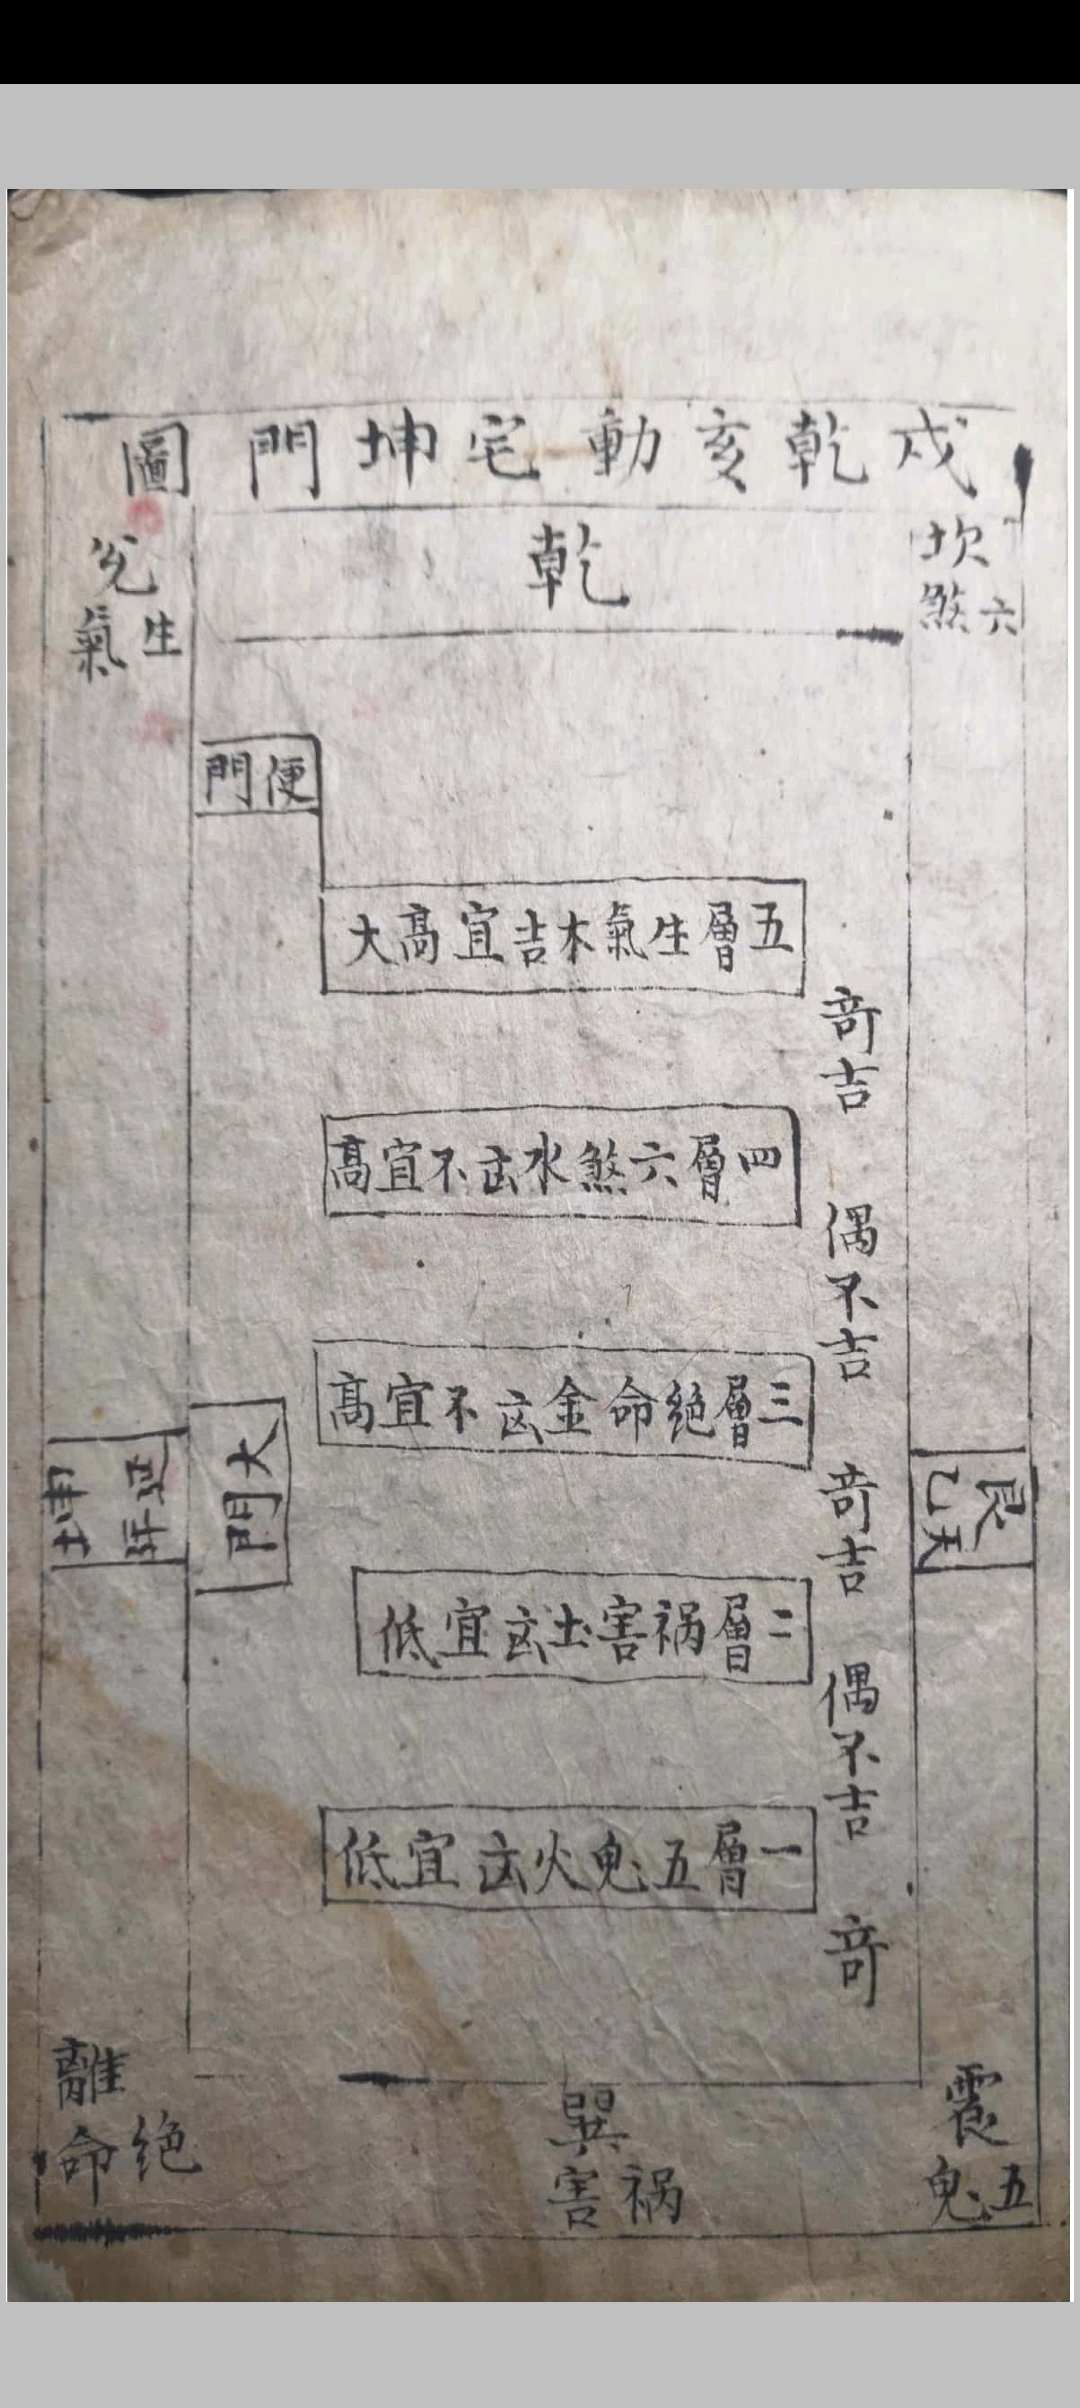 戍乾亥動宅坤門圖
乾
坎
六煞
兊
生氣
便門
五層生氣木吉宜高大
竒吉
四層六煞水㐫不宜高
偶不吉
三層絕命金㐫不宜高
竒吉
大門
坤
延年
艮
天乙
二層祸害土㐫宜低
偶不吉
一層五鬼火㐫宜低
竒
離
絕命
巽
祸害
震
五鬼